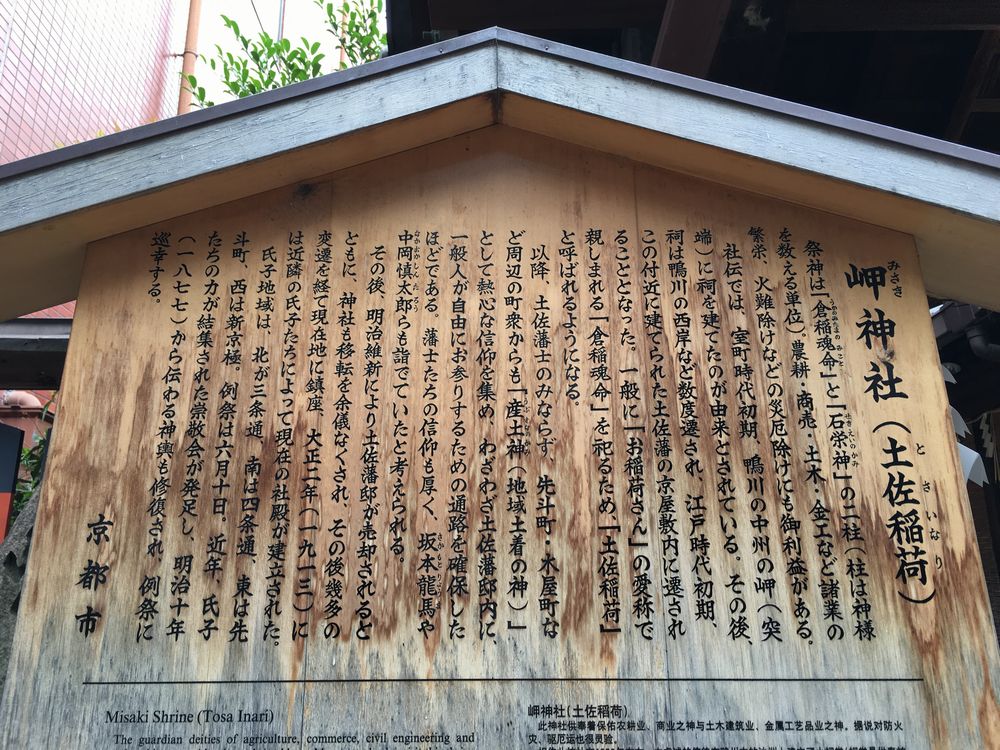 岬神社（土佐稲荷）
みさき
とさいなり
祭神は「倉稲魂命」と「石栄神」の二柱（柱は神様
うかのみたまのみこと
せきえいのかみ
を数える単位）。農耕・商売・土木・金工など諸業の
繁栄、火難除けなどの災厄除けにも御利益がある。
社伝では、室町時代初期、鴨川の中州の岬（突
端）に祠を建てたのが由来とされている。その後、
祠は鴨川の西岸など数度遷され、江戸時代初期、
この付近に建てられた土佐藩の京屋敷内に遷され
ることとなった。一般に「お稲荷さん」の愛称で
親しまれる「倉稲魂命」を祀るため「土佐稲荷」
と呼ばれるようになる。
以降、土佐藩士のみならず、先斗町・木屋町な
ど周辺の町衆からも「産土神（地域土着の神）」
うぶすながみ
として熱心な信仰を集め、わざわざ土佐藩邸内に、
一般人が自由にお参りするための通路を確保した
ほどである。藩士たちの信仰も厚く、坂本龍馬や
さかもとりょうま
中岡慎太郎らも詣でていたと考えられる。
なかおかしんたろう
その後、明治維新により土佐藩邸が売却されると
ともに、神社も移転を余儀なくされ、その後幾多の
変遷を経て現在地に鎮座、大正二年（一九一三）に
は近隣の氏子たちによって現在の社殿が建立された。
氏子地域は、北が三条通、南は四条通、東は先
斗町、西は新京極。例祭は六月十日。近年、氏子
たちの力が結集された崇敬会が発足し、明治十年
（一八七七）から伝わる神輿も修復され、例祭に
巡幸する。
京都市
Misaki Shrine (Tosa Inari)
The guardian deities of agriculture, commerce, civil engineering and
岬神社（土佐稻荷）
此神社供奉着保佑农耕业、商业之神与土木建筑业、金属工艺品业之神。据说对防火
灾、驱厄运也很灵验。